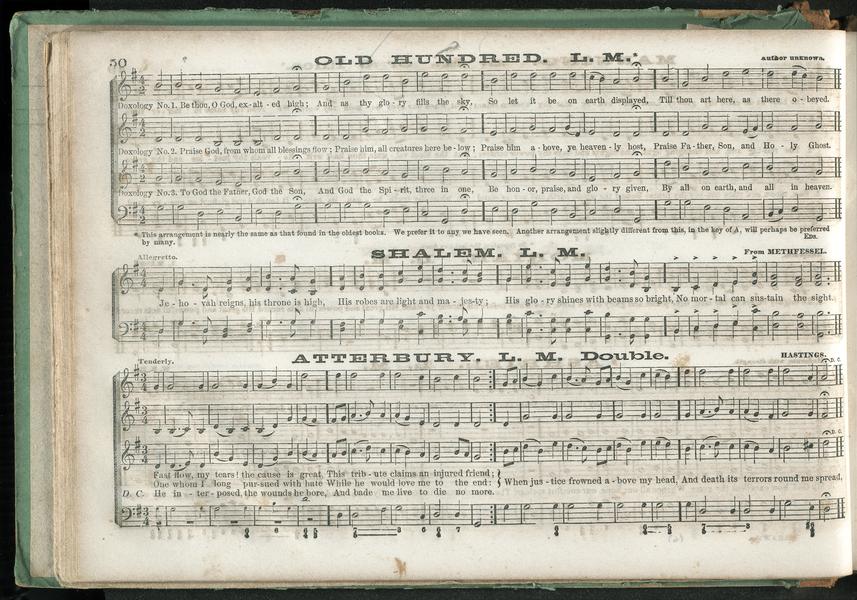 50
OLD HUNDRED. L. M.*
Author unknown.
Doxology No. 1. Be thou, O God, ex-alt-ed high; And as thy glo-ry fills the sky, So let it be on earth displayed, Till thou art here, as there o-beyed.
Doxology No. 2. Praise God, from whom all blessings flow; Praise him, all creatures here be-low; Praise him a-bove, ye heaven-ly host, Praise Fa-ther, Son, and Ho-ly Ghost.
Doxology No. 3. To God the Father, God the Son, And God the Spi-rit, three in one, Be hon-or, praise, and glo-ry given, By all on earth, and all in heaven.
* This arrangement is nearly the same as that found in the oldest books. We prefer it to any we have seen. Another arrangement slightly different from this, in the key of A, will perhaps be preferred
by many. Eds.
Allegretto.
SHALEM. L. M.
From METHFESSEL.
Je-ho-vah reigns, his throne is high, His robes are light and ma-jes-ty; His glo-ry shines with beams so bright, No mor-tal can sus-tain the sight.
Tenderly.
ATTERBURY. L. M. Double.
HASTINGS.
D. C.
D. C.
Fast flow, my tears! the cause is great, This trib-ute claims an injured friend;
One whom I long pur-sued with hate While he would love me to the end: } When jus-tice frowned a-bove my head, And death its terrors round me spread,
D. C. He in-ter-posed, the wounds he bore, And bade me live to die no more.